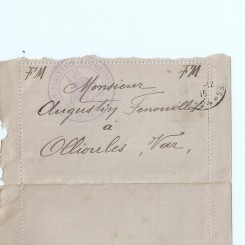 FM FM
Monsieur
Augustin Fenouillet
à
Ollioules, Var,